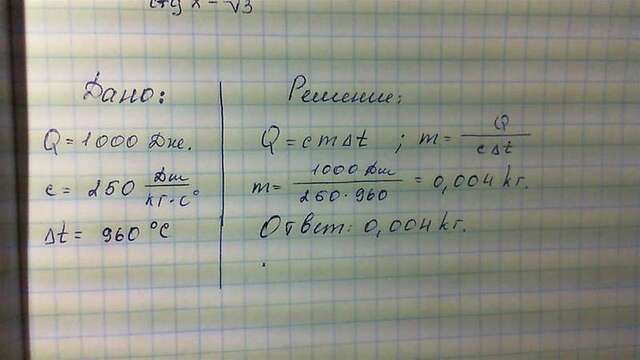 ctg x - √3
Дано:
Q = 1000 Дж.
c = 250 Дж/кг·с°
Δt = 960 °C
Решение:
Q = c m Δt ; m = Q/cΔt
m = 1000 Дж/250·960 = 0,004 кг.
Ответ: 0,004 кг.